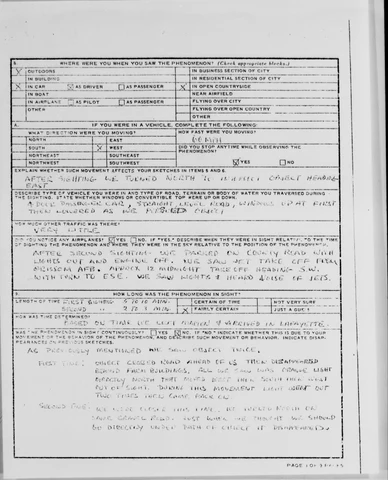 WHERE WERE YOU WHEN YOU SAW THE PHENOMENON? (Check appropriate blocks.)
X OUTDOORS IN BUSINESS SECTION OF CITY
IN BUILDING IN RESIDENTIAL SECTION OF CITY
X IN CAR AS DRIVER AS PASSENGER X IN OPEN COUNTRYSIDE
IN BOAT NEAR AIRFIELD
IN AIRPLANE AS PILOT AS PASSENGER FLYING OVER CITY
OTHER FLYING OVER OPEN COUNTRY
OTHER
IF YOU WERE IN A VEHICLE, COMPLETE THE FOLLOWING:
WHAT DIRECTION WERE YOU MOVING? HOW FAST WERE YOU MOVING?
NORTH EAST 60 MPH
SOUTH X WEST DID YOU STOP ANYTIME WHILE OBSERVING THE PHENOMENON?
NORTHEAST SOUTHEAST
NORTHWEST SOUTHWEST YES NO
EXPLAIN WHETHER SUCH MOVEMENT AFFECTS YOUR SKETCHES IN ITEMS 5 AND 6
AFTER SIGHTING WE TURNED NORTH TO OBJECT HEADING
EAST
DESCRIBE TYPE OF VEHICLE YOU WERE IN AND TYPE OF ROAD, TERRAIN OR BODY OF WATER YOU TRAVERSED DURING
THE SIGHTING. STATE WHETHER WINDOWS OR CONVERTIBLE TOP WERE UP OR DOWN.
CAR, STRAIGHT, LEVEL ROAD, WINDOWS UP AT FIRST
THEN LOWERED AS WE
HOW MUCH OTHER TRAFFIC WAS THERE?
VERY LITTLE
DID YOU NOTICE ANY AIRPLANES? YES NO. IF "YES," DESCRIBE WHEN THEY WERE IN SIGHT RELATIVE TO THE TIME
OF SIGHTING THE PHENOMENON AND WHERE THEY WERE IN THE SKY RELATIVE TO THE POSITION OF THE PHENOMENON.
AFTER SECOND SIGHTING WE PARKED ON COUNTY ROAD WITH
LIGHTS OUT AND ENGINE OFF. WE SAW JET TAKE OFF FROM
AFB. APPROX 12 MIDNIGHT TAKE OFF HEADING S.W.
WITH TURN TO ESE. WE SAW LIGHTS & HEARD NOISE OF JETS.
HOW LONG WAS THE PHENOMENON IN SIGHT?
LENGTH OF TIME FIRST SIGHTING 5 TO 10 MIN. CERTAIN OF TIME NOT VERY SURE
SECOND " 2 TO 3 MIN. X FAIRLY CERTAIN JUST A GUESS
HOW WAS TIME DETERMINED?
BASED ON TIME WE & ARRIVED IN LAFAYETTE.
WAS THE PHENOMENON IN SIGHT CONTINUOUSLY? YES NO. IF "NO," INDICATE WHETHER THIS IS DUE TO YOUR
MOVEMENT OR THE BEHAVIOR OF THE PHENOMENON, AND DESCRIBE SUCH MOVEMENT OR BEHAVIOR. INDICATE DISAP-
PEARANCES ON PREVIOUS SKETCHES.
AS PREVIOUSLY MENTIONED WE SAW OBJECT TWICE.
FIRST TIME: OBJECT CROSSED ROAD AHEAD OF US THEN DISAPPEARED
BEHIND FARM BUILDINGS. ALL WE SAW WAS ORANGE LIGHT
DIRECTLY NORTH THAT MOVED THEN SOUTH THEN WENT
OUT OF SIGHT. DURING THIS MOVEMENT LIGHT WENT OUT
TWO TIMES THEN CAME BACK ON.
SECOND TIME: WE WERE CLOSER THIS TIME,
GRAVEL ROAD. JUST WHEN WE THOUGHT WE SHOULD
BE DIRECTLY UNDER PATH OF OBJECT IT DISAPPEARED.